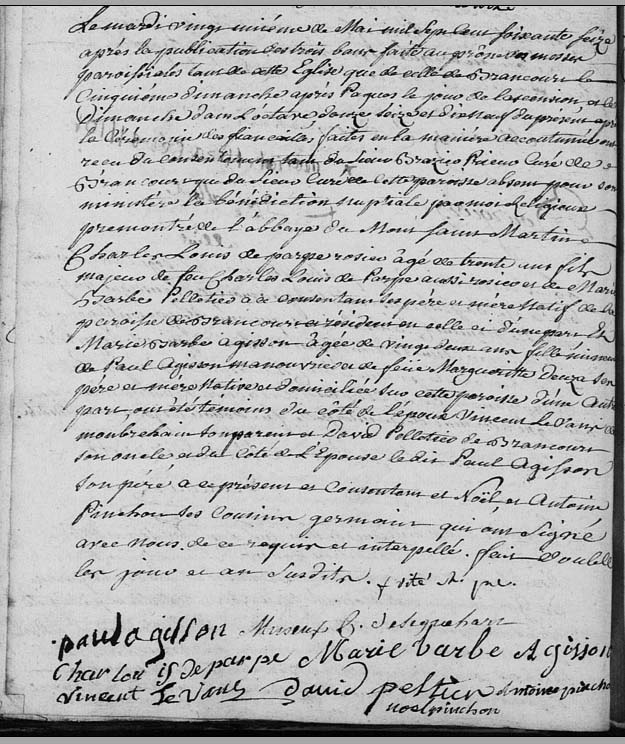 Le mardi vingt unieme de Mai mil Sept cent soixante seize
après la publication des trois bans faite au prône des messes
paroissiales tant de cette Eglise que de celle de Brancourt le
Cinquième dimanche après Paques le jour de l'ascension, et le
Dimanche dans l'octave douze seize et dix neuf du present après
la Cérémonie des fiançailles faites en la manière accoutumée
reçu du consentement tant du Sieur Prieur Curé de
Brancourt que du Sieur Curé de cette paroisse absent pour son
ministère la bénédiction nuptiale par moi Religieux
premontré de l'abbaye du Mont saint Martin
Charles Louis de parpe rosier âgé de trente un fils
majeur de feu Charles Louis de Parpe aussi rosier et de Marie
Barbe Pelletier a ce consentant ses père et mère Natif de la
paroisse de Brancourt et résident en celle ci d'une part Et
Marie Barbe agisson agée de vingt deux ans fille mineure
de Paul Agisson manouvrier de feüe Margueritte ses
père et mère Native et domiciliée sur cette paroisse d'une Autre
part, ont été témoins du côté de l'epoux Vincent Le Vans de
montbrehain son parent et David Pelletier de Brancourt
son oncle et du Coté de L'Epouse le dit Paul Agisson
son père a ce présent et Consentant et Noël et Antoine
Pinchon ses Cousins germains qui ont Signé
avec Nous de ce requis et interpellé. fait double
les jour et an Susdits.
paul agisson C. desequehart
Charlou is de parpe Marie barbe Agisson
vincent le vans david peltier pincho
noel pinchon